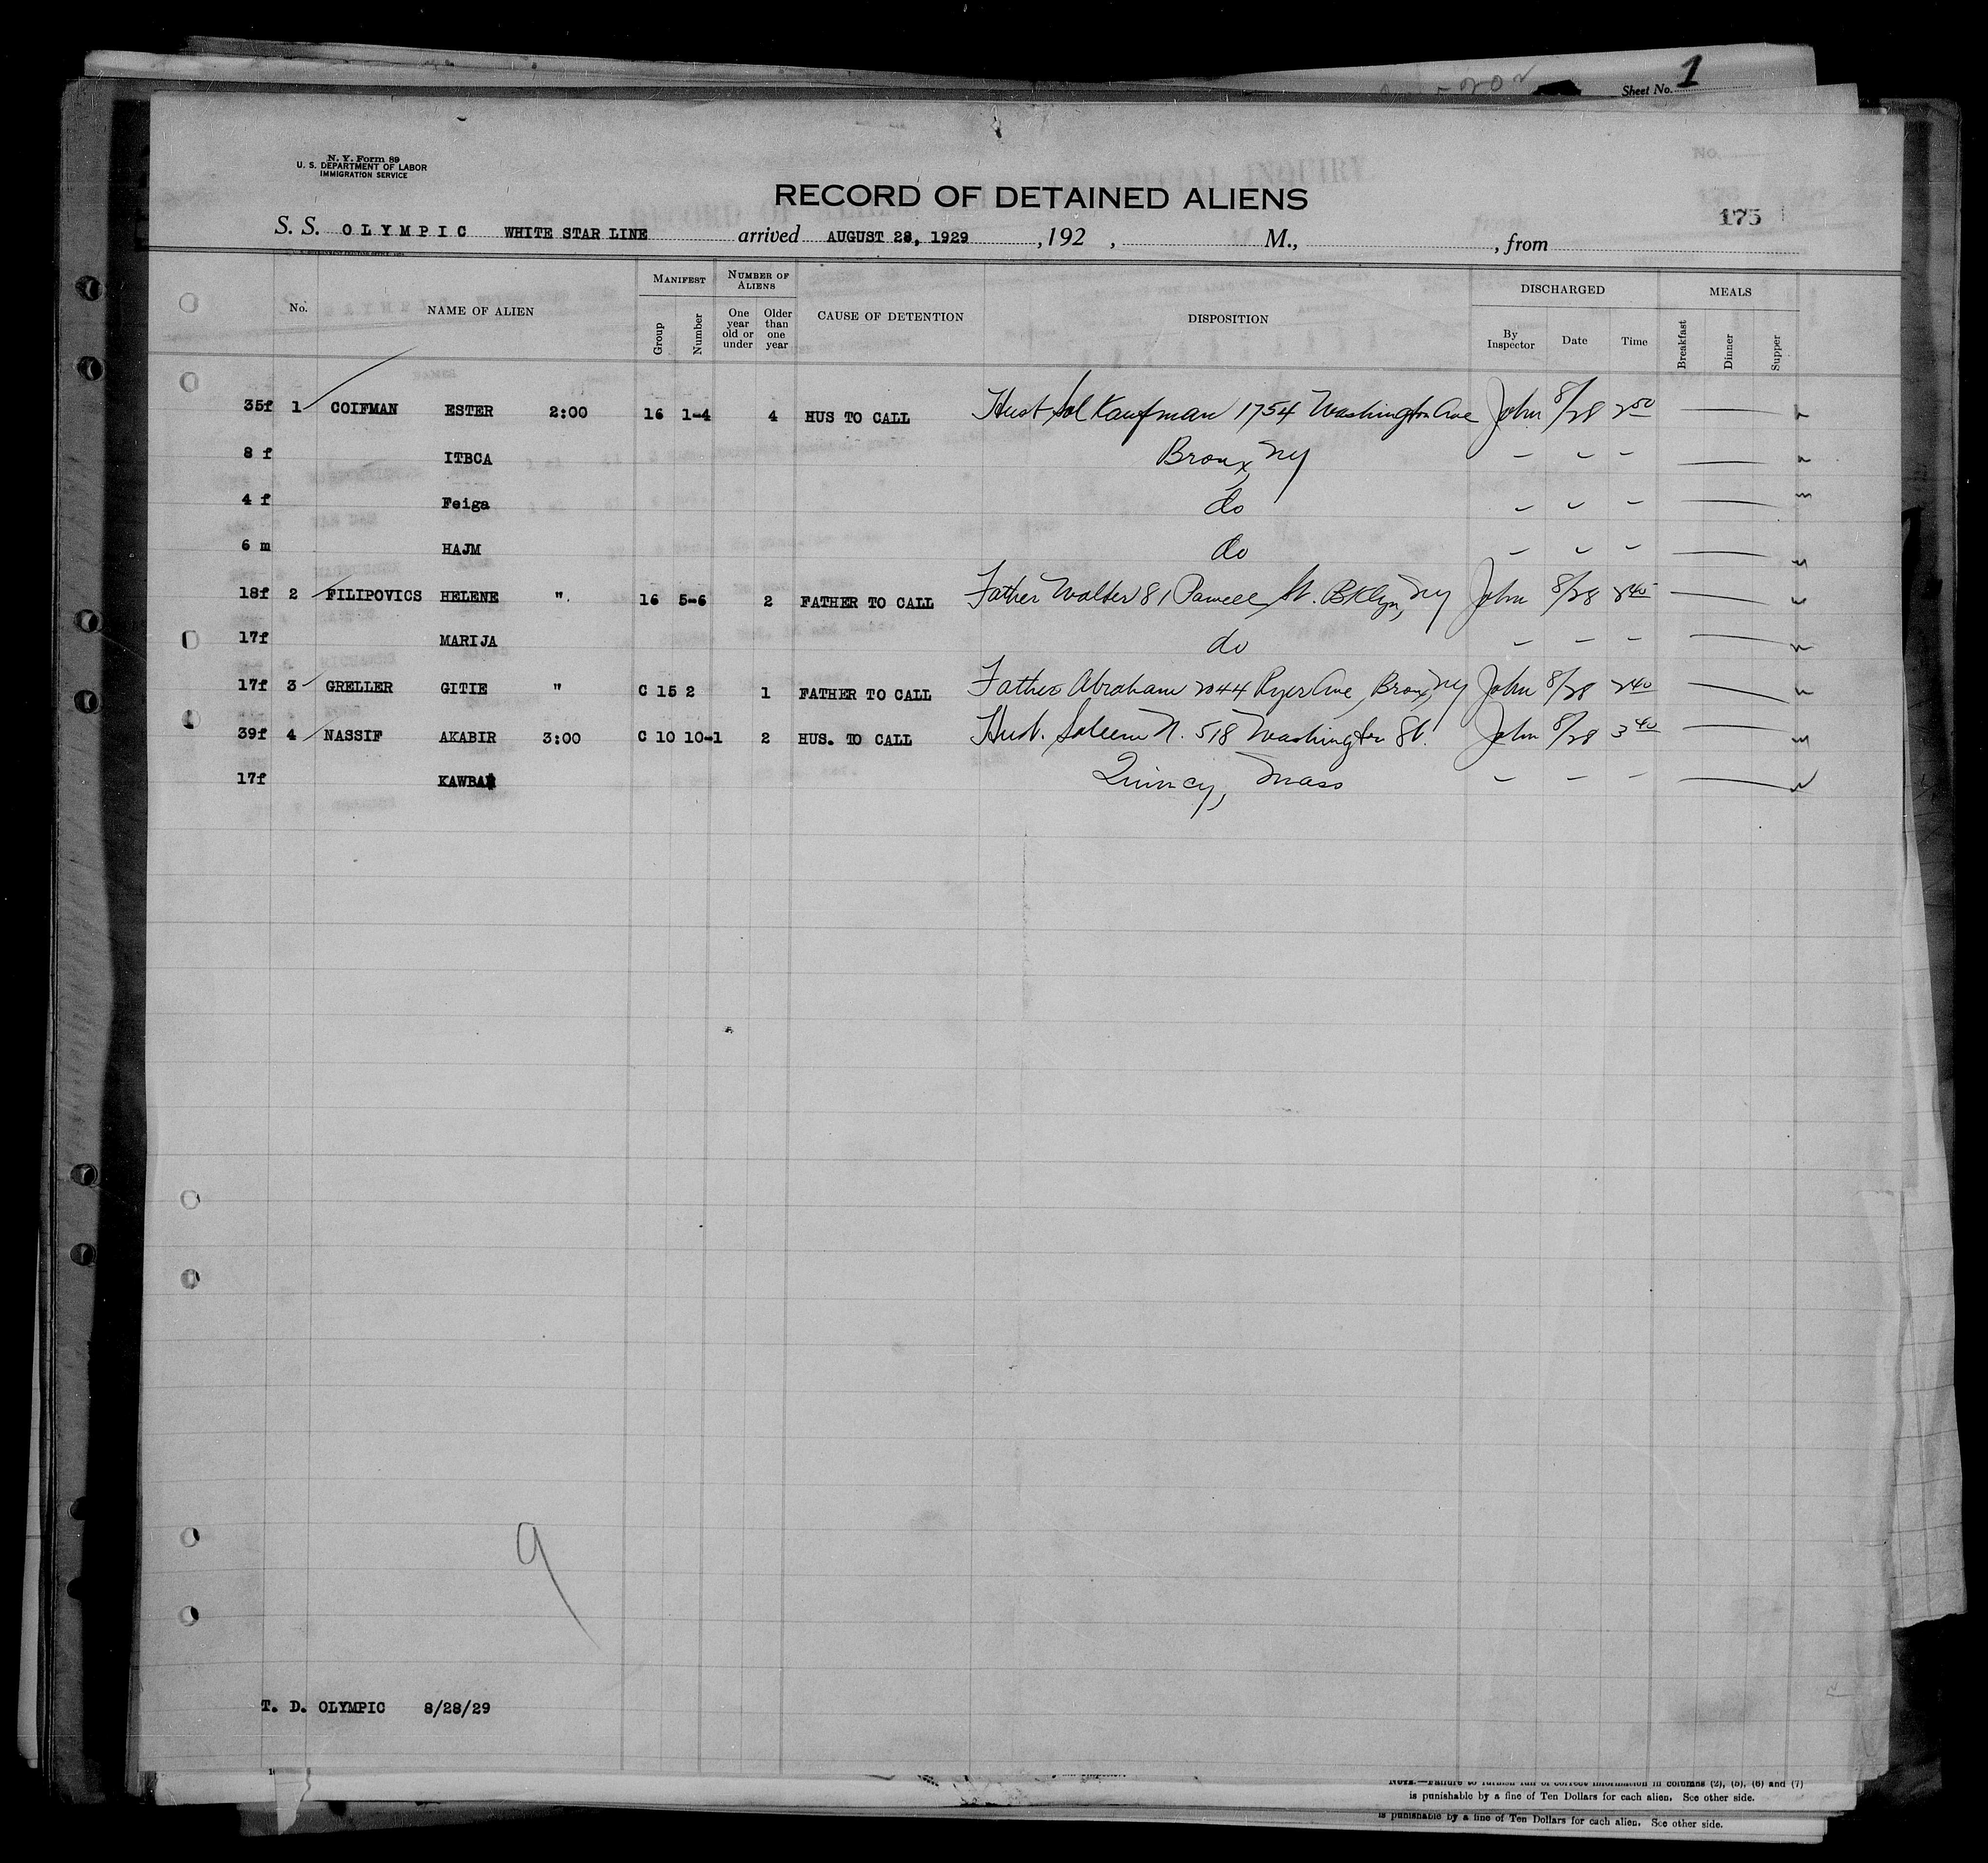 Sheet No. 1
N. Y. Form 89
U. S. DEPARTMENT OF LABOR
IMMIGRATION SERVICE
RECORD OF DETAINED ALIENS
175
S. S. OLYMPIC WHITE STAR LINE arrived AUGUST 28, 1929 , 192 , M., , from
No. NAME OF ALIEN MANIFEST Group Number NUMBER OF ALIENS One year old or under Older than one year CAUSE OF DETENTION DISPOSITION DISCHARGED By Inspector Date Time MEALS Breakfast Dinner Supper
35f 1 COIFMAN ESTER 2:00 16 1-4 4 HUS TO CALL Hust Sol Kaufman 1754 Washington Ave John 8/28 2 50
8 f ITBCA Bronx, NY
4 f Feiga do
6 m HAJM do
18f 2 FILIPOVICS HELENE ". 16 5-6 2 FATHER TO CALL Father Walter 81 Powell St. BKlyn, NY John 8/28 2 40
17f MARIJA do
17f 3 GRELLER GITIE " C 15 2 1 FATHER TO CALL Father Abraham 2044 Ryer Ave, Bronx, NY John 8/28 2 40
39f 4 NASSIF AKABIR 3:00 C 10 10-1 2 HUS. TO CALL Hust. Saleem N. 518 Washington St. John 8/28 3 40
17f Quincy, Mass
9
T. D. OLYMPIC 8/28/29
(2), (5), (6) and (7)
is punishable by a fine of Ten Dollars for each alien. See other side.
is punishable by a fine of Ten Dollars for each alien. See other side.